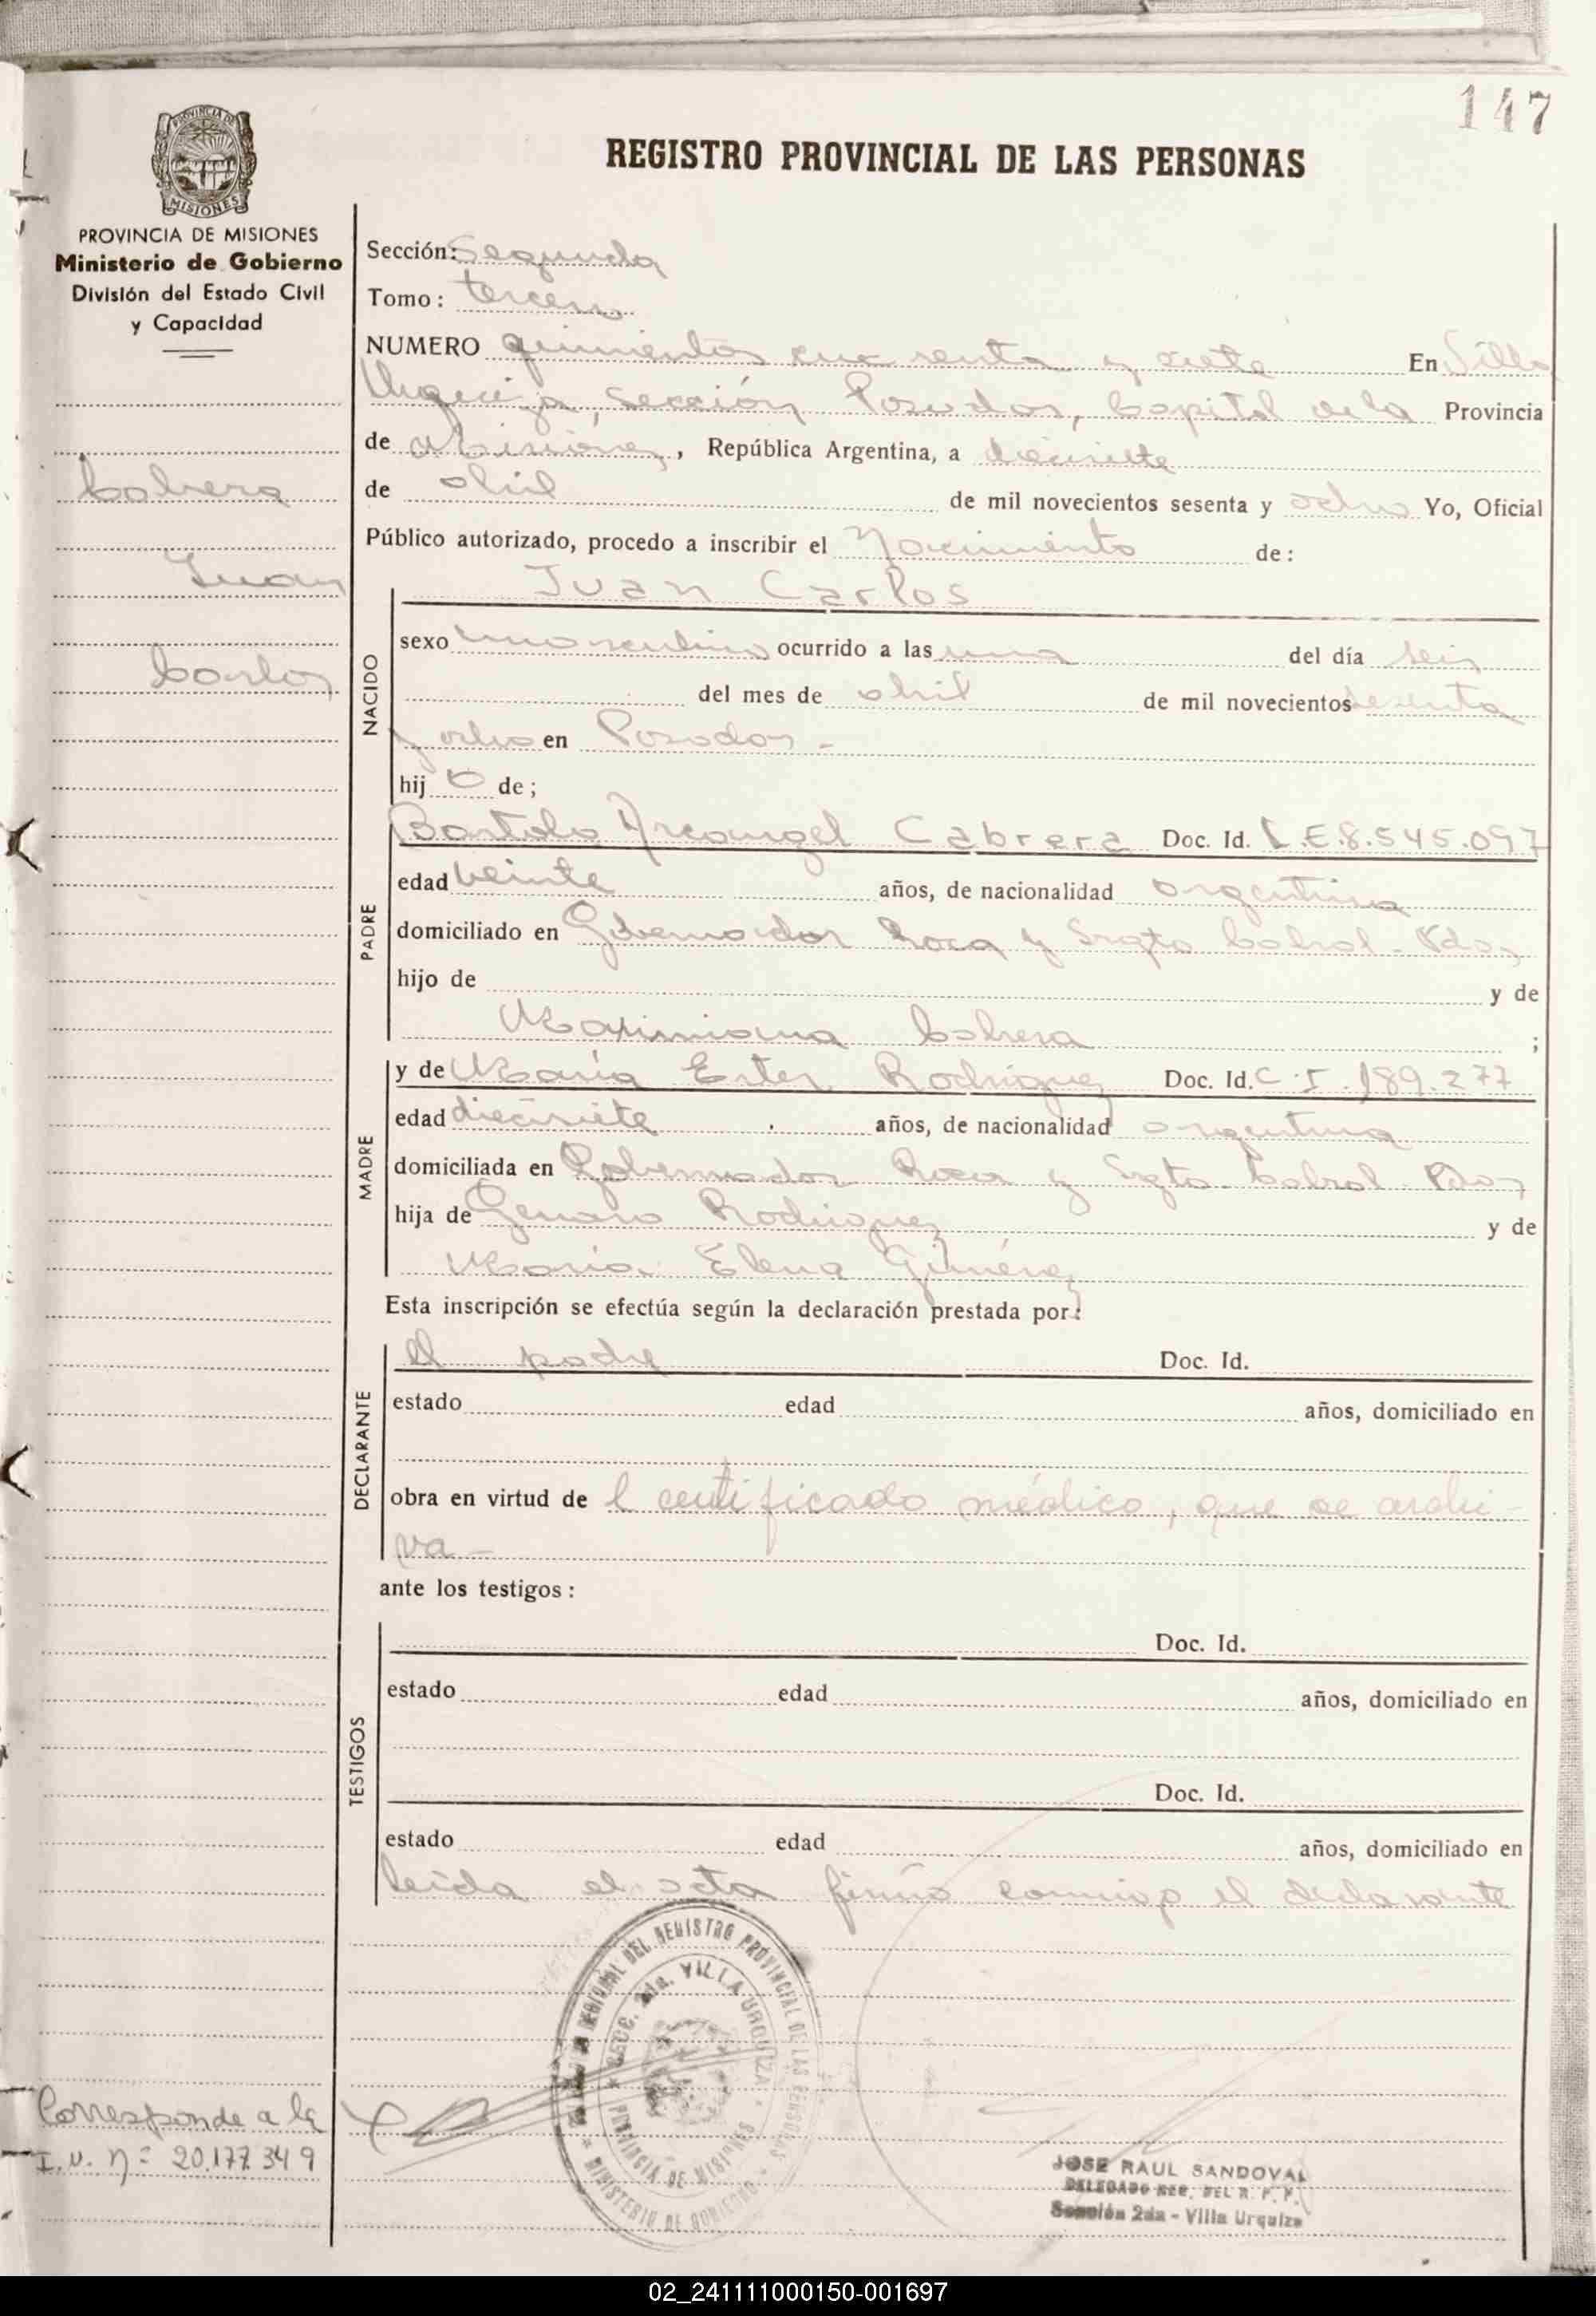 147
REGISTRO PROVINCIAL DE LAS PERSONAS
PROVINCIA DE MISIONES
MISIONES
PROVINCIA DE MISIONES
Ministerio de Gobierno
División del Estado Civil
y Capacidad
Cabrera
Juan
Carlos
Sección: Segunda
Tomo: tercero
NUMERO quinientos cuarenta y siete En Villa
Urquiza, Sección Posadas, Capital de la Provincia
de Misiones, República Argentina, a diecisiete
de abril de mil novecientos sesenta y ocho Yo, Oficial
Público autorizado, procedo a inscribir el Nacimiento de:
Juan Carlos
NACIDO
sexo masculino ocurrido a las una del día seis
del mes de abril de mil novecientos sesenta
y ocho en Posadas -
hij o de;
PADRE
Bartolo Arcangel Cabrera Doc. Id. L.E.8.545.097
edad veinte años, de nacionalidad argentina
domiciliado en Gobernador Roca y Sgto Cabral - Pdas
hijo de y de
Maximiana Cabrera ;
MADRE
y de María Ester Rodriguez Doc. Id. C.I.189.277
edad diecisiete años, de nacionalidad argentina
domiciliada en Gobernador Roca y Sgto. Cabral Pdas
hija de Genaro Rodriguez y de
María Elena Giménez
Esta inscripción se efectúa según la declaración prestada por:
DECLARANTE
el padre Doc. Id.
estado edad años, domiciliado en
obra en virtud de l certificado médico, que se archi-
va -
ante los testigos:
TESTIGOS
Doc. Id.
estado edad años, domiciliado en
Doc. Id.
estado edad años, domiciliado en
leída el acta firmó conmigo el declarante
REGIONAL DEL REGISTRO PROVINCIAL DE LAS PERSONAS
SECC. 2da. VILLA URQUIZA
PROVINCIA DE MISIONES
MINISTERIO DE GOBIERNO
Corresponde a la
I.N. Nº 20.177.349
JOSE RAUL SANDOVAL
DELEGADO REG. DEL R. P. P.
Sección 2da - Villa Urquiza
02_241111000150-001697